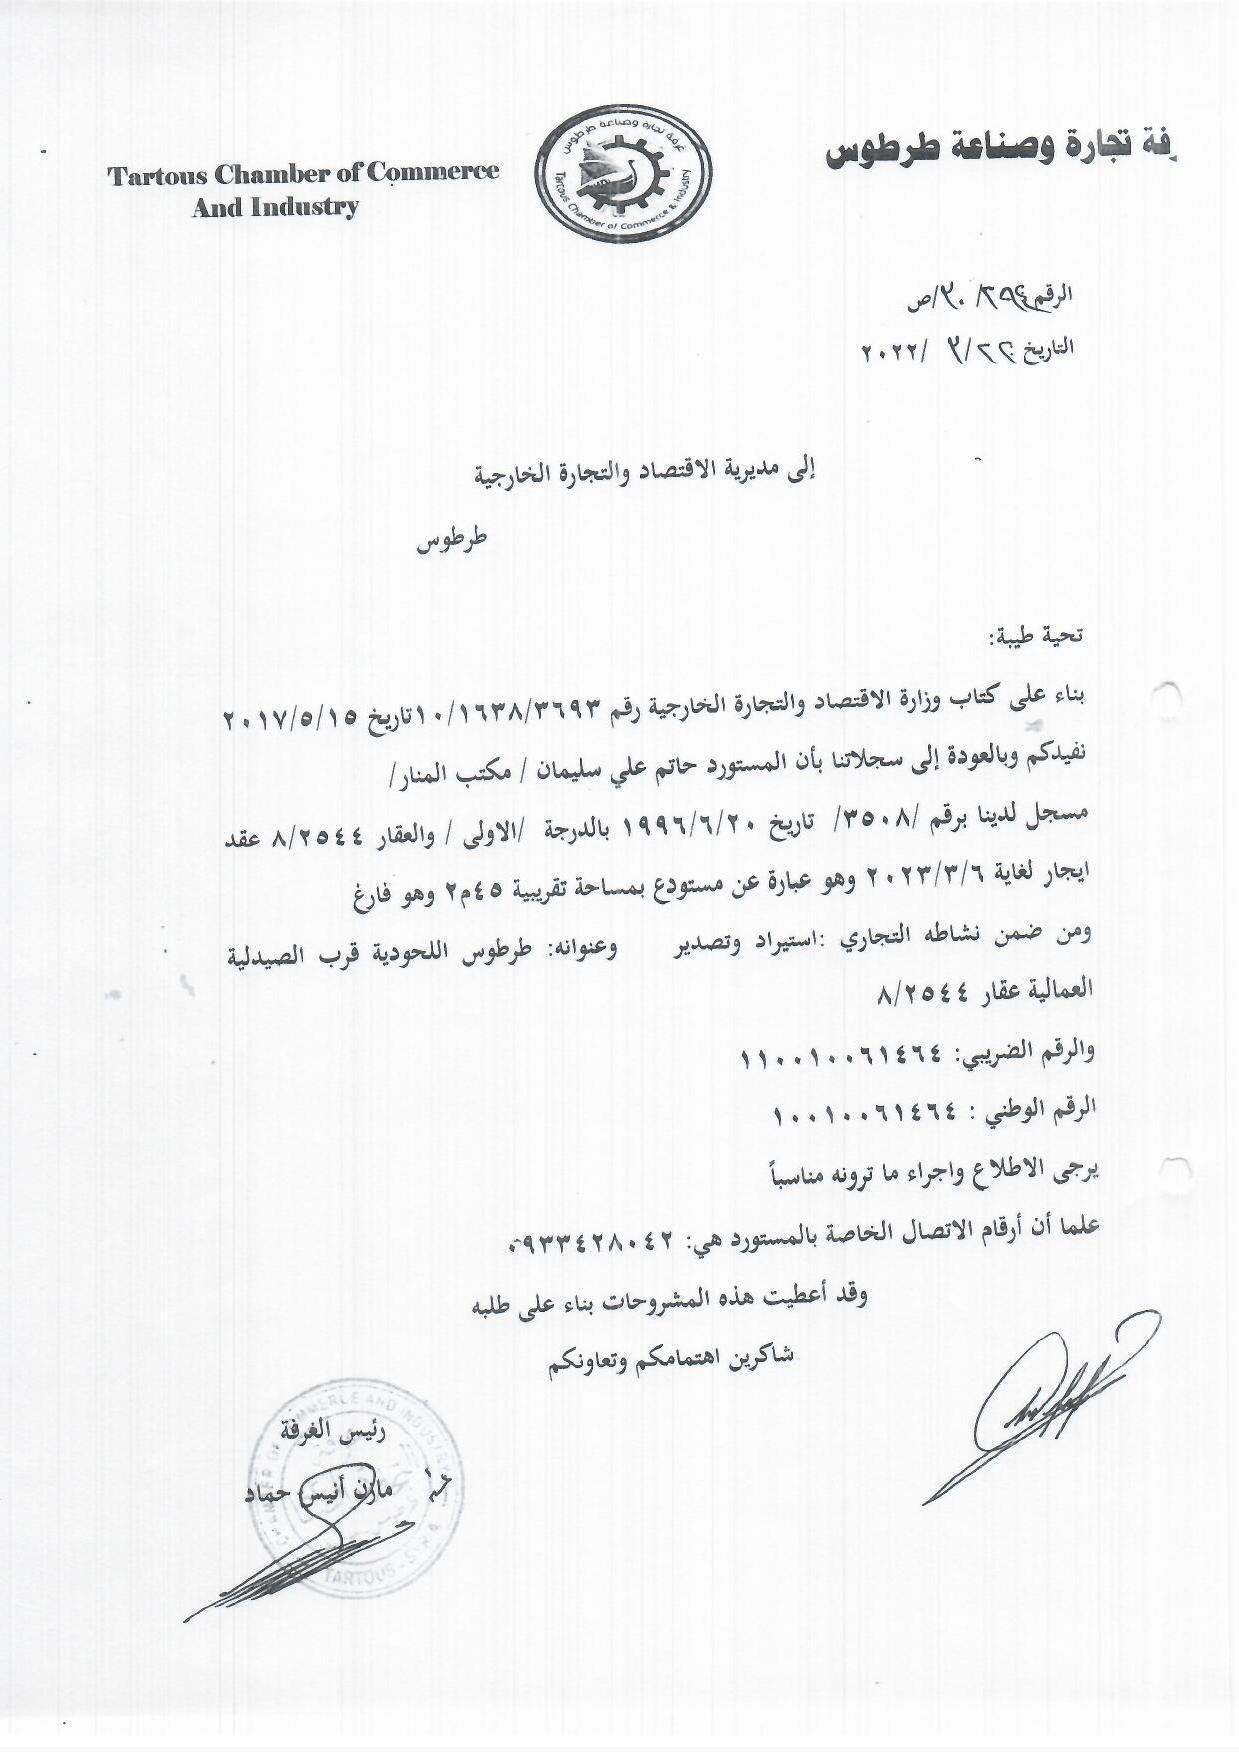 فة تجارة وصناعة طرطوس
Tartous Chamber of Commerce
And Industry
غرفة تجارة وصناعة طرطوس
Tartous Chamber of Commerce & Industry
الرقم ٢٩٤/ ٣٠/ص
التاريخ ٢٢/ ٣/ ٢٠٢٢
إلى مديرية الاقتصاد والتجارة الخارجية
طرطوس
تحية طيبة:
بناء على كتاب وزارة الاقتصاد والتجارة الخارجية رقم ١٠/١٦٣٨/٣٦٩٣تاريخ ٢٠١٧/٥/١٥
نفيدكم وبالعودة إلى سجلاتنا بأن المستورد حاتم علي سليمان / مكتب المنار/
مسجل لدينا برقم /٣٥٠٨/ تاريخ ١٩٩٦/٦/٢٠ بالدرجة /الاولى / والعقار ٨/٢٥٤٤ عقد
ايجار لغاية ٢٠٢٣/٣/٦ وهو عبارة عن مستودع بمساحة تقريبية ٤٥م٢ وهو فارغ
ومن ضمن نشاطه التجاري :استيراد وتصدير وعنوانه: طرطوس اللحودية قرب الصيدلية
العمالية عقار ٨/٢٥٤٤
والرقم الضريبي: ١١٠٠١٠٠٦١٤٦٤
الرقم الوطني : ١٠٠١٠٠٦١٤٦٤
يرجى الاطلاع واجراء ما ترونه مناسباً
علما أن أرقام الاتصال الخاصة بالمستورد هي: ٠٩٣٣٤٢٨٠٤٢
وقد أعطيت هذه المشروحات بناء على طلبه
شاكرين اهتمامكم وتعاونكم
رئيس الغرفة
مازن أنيس حماد
COMMERCE AND INDUSTRY
TARTOUS